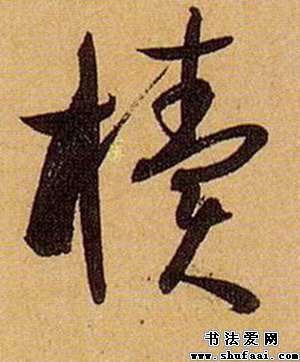 櫝
书法爱网
www.shufaai.com